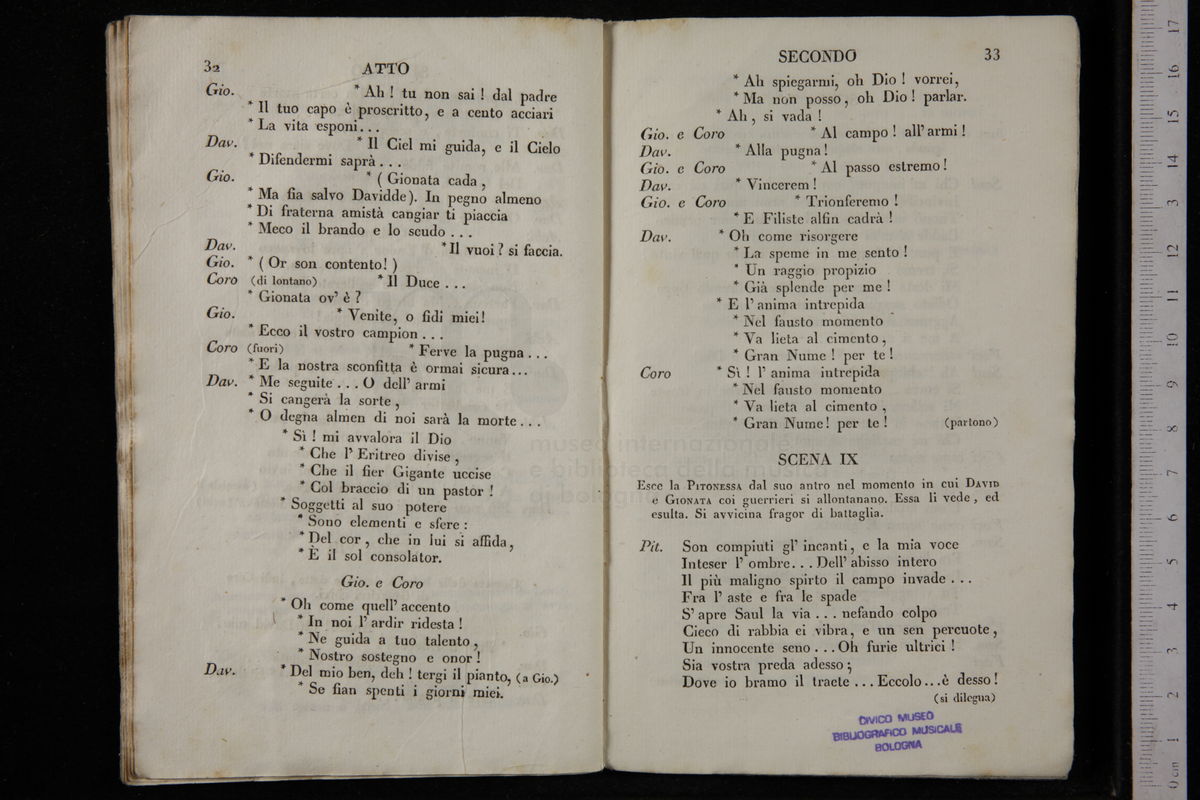 32 ATTO
Gio. * Ah ! tu non sai ! dal padre
* Il tuo capo è proscritto, e a cento acciari
* La vita esponi...
Dav. * Il Ciel mi guida, e il Cielo
* Difendermi saprà...
Gio. * ( Gionata cada ,
* Ma fia salvo Davidde). In pegno almeno
* Di fraterna amistà cangiar ti piaccia
* Meco il brando e lo scudo ...
Dav. * Il vuoi ? si faccia.
Gio. * ( Or son contento! )
Coro (di lontano) * Il Duce ...
* Gionata ov' è ?
Gio. * Venite, o fidi miei!
* Ecco il vostro campion ...
Coro (fuori) * Ferve la pugna ...
* E la nostra sconfitta è ormai sicura...
Dav. * Me seguite ... O dell' armi
* Si cangerà la sorte ,
* O degna almen di noi sarà la morte...
* Sì ! mi avvalora il Dio
* Che l' Eritreo divise ,
* Che il fier Gigante uccise
* Col braccio di un pastor !
* Soggetti al suo potere
* Sono elementi e sfere :
* Del cor , che in lui si affida,
* È il sol consolator.
Gio. e Coro
* Oh come quell' accento
* In noi l' ardir ridesta !
* Ne guida a tuo talento ,
* Nostro sostegno e onor !
Dav. * Del mio ben, deh ! tergi il pianto, (a Gio.)
* Se fian spenti i giorni miei.
SECONDO 33
* Ah spiegarmi, oh Dio ! vorrei,
* Ma non posso, oh Dio ! parlar.
* Ah , si vada !
Gio. e Coro * Al campo ! all' armi !
Dav. * Alla pugna !
Gio. e Coro * Al passo estremo !
Dav. * Vincerem !
Gio. e Coro * Trionferemo !
* E Filiste alfin cadrà !
Dav. * Oh come risorgere
* La speme in me sento !
* Un raggio propizio
* Già splende per me !
* E l' anima intrepida
* Nel fausto momento
* Va lieta al cimento ,
* Gran Nume ! per te !
Coro * Sì ! l' anima intrepida
* Nel fausto momento
* Va lieta al cimento ,
* Gran Nume! per te ! (partono)
SCENA IX
Esce la PITONESSA dal suo antro nel momento in cui DAVID
e GIONATA coi guerrieri si allontanano. Essa li vede , ed
esulta. Si avvicina fragor di battaglia.
Pit. Son compiuti gl' incanti, e la mia voce
Inteser l' ombre... Dell' abisso intero
Il più maligno spirto il campo invade ...
Fra l' aste e fra le spade
S' apre Saul la via ... nefando colpo
Cieco di rabbia ei vibra, e un sen percuote,
Un innocente seno ... Oh furie ultrici !
Sia vostra preda adesso ;
Dove io bramo il traete ... Eccolo...è desso !
(si dilegua)
CIVICO MUSEO
BIBLIOGRAFICO MUSICALE
BOLOGNA
museo internazionale
e biblioteca della musica
di bologna